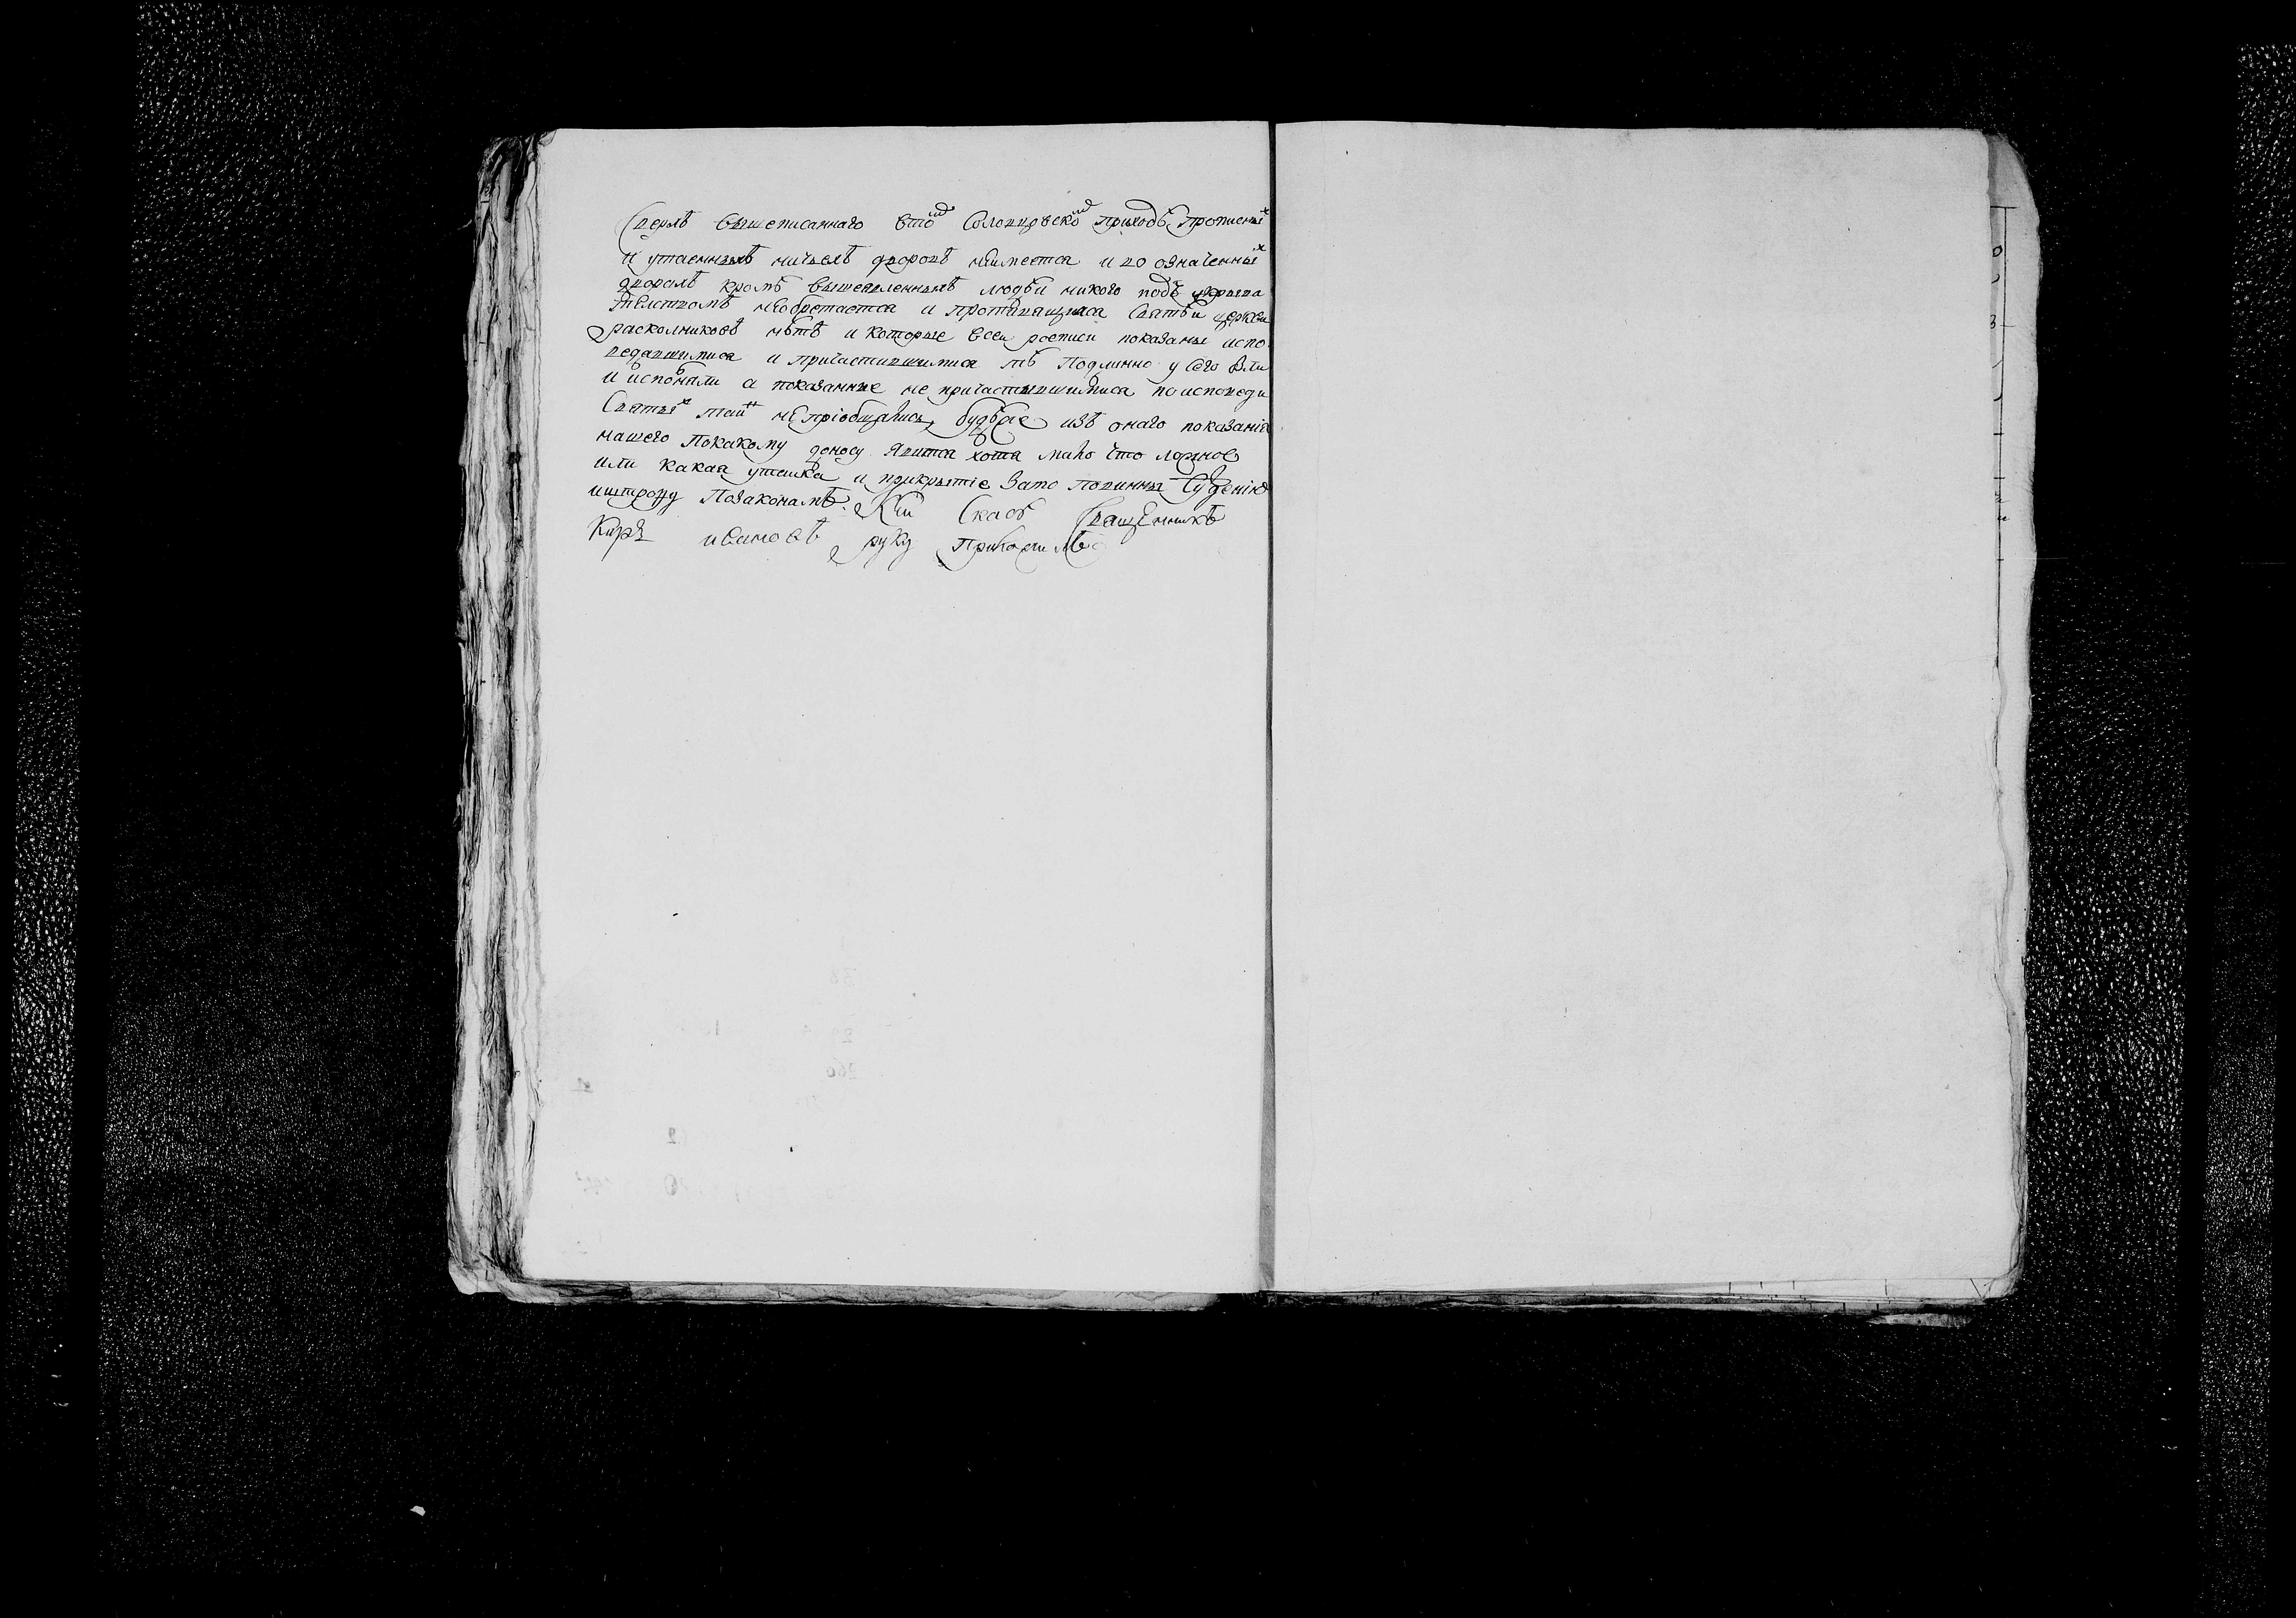 Сверхъ вышеписаннаго втой Соловцовской приходѣ прописных
и утаенныхъ ничьихъ дворовъ неимеется и во означенных
дворахъ кромѣ вышеявленныхъ людѣй никого подъ укрыва
телствомъ необретается и противящихся Святѣй церкви
расколниковъ нѣтъ и которые всеи росписи показаны испо
ведавшимися и причастившимися тѣ Подлинно у сего были
и исполняли а показанные не причастившимися по исповеди
Святых таин непріобщались, будѣже изъ онаго показанія
нашего Покакому доносу явится хотя мало что ложное
или какая утайка и прикрытіе Зато повинны Суженію
иштрофу Позакономъ.
Священникъ
Киръ ивановъ руку Приложилъ
38
260